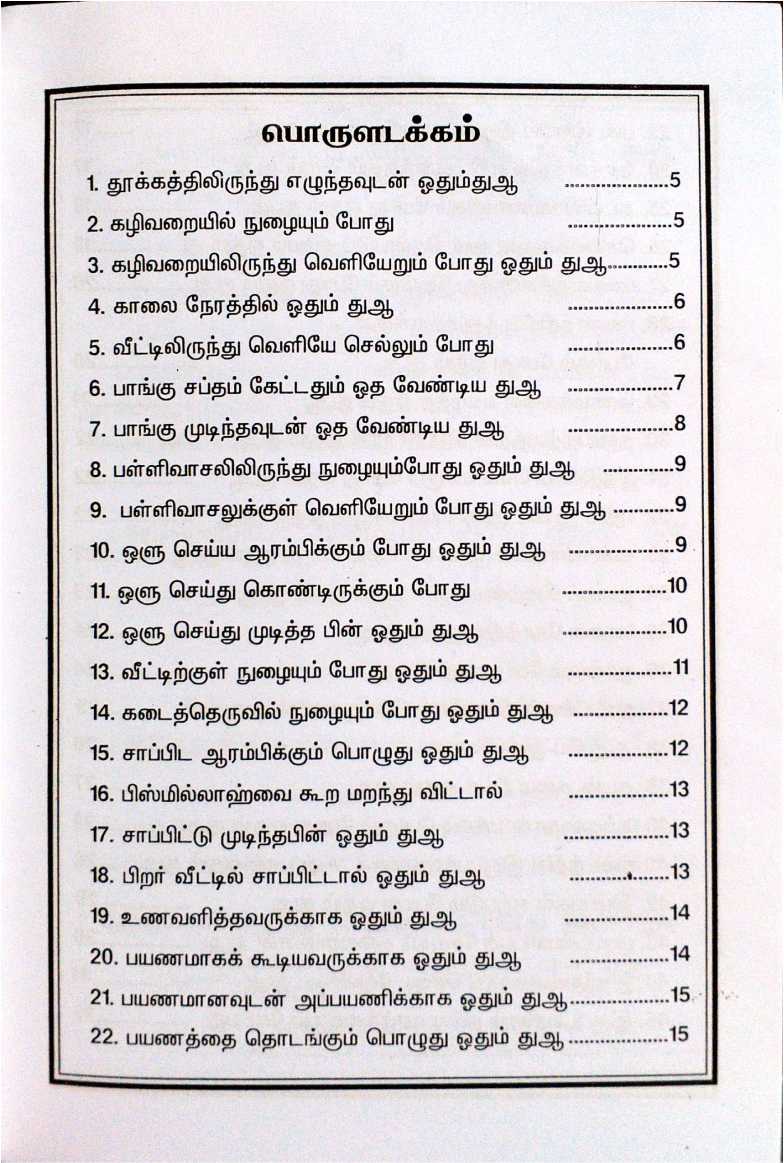 பொருளடக்கம்
1. தூக்கத்திலிருந்து எழுந்தவுடன் ஓதும்துஆ ....................5
2. கழிவறையில் நுழையும் போது ....................5
3. கழிவறையிலிருந்து வெளியேறும் போது ஓதும் துஆ............5
4. காலை நேரத்தில் ஓதும் துஆ ....................6
5. வீட்டிலிருந்து வெளியே செல்லும் போது ....................6
6. பாங்கு சப்தம் கேட்டதும் ஓத வேண்டிய துஆ ....................7
7. பாங்கு முடிந்தவுடன் ஓத வேண்டிய துஆ ....................8
8. பள்ளிவாசலிலிருந்து நுழையும்போது ஓதும் துஆ .............9
9. பள்ளிவாசலுக்குள் வெளியேறும் போது ஓதும் துஆ ............9
10. ஒளு செய்ய ஆரம்பிக்கும் போது ஓதும் துஆ ....................9
11. ஒளு செய்து கொண்டிருக்கும் போது ....................10
12. ஒளு செய்து முடித்த பின் ஓதும் துஆ ....................10
13. வீட்டிற்குள் நுழையும் போது ஓதும் துஆ ....................11
14. கடைத்தெருவில் நுழையும் போது ஓதும் துஆ ...................12
15. சாப்பிட ஆரம்பிக்கும் பொழுது ஓதும் துஆ ....................12
16. பிஸ்மில்லாஹ்வை கூற மறந்து விட்டால் ...................13
17. சாப்பிட்டு முடிந்தபின் ஓதும் துஆ ....................13
18. பிறர் வீட்டில் சாப்பிட்டால் ஓதும் துஆ ...................13
19. உணவளித்தவருக்காக ஓதும் துஆ ....................14
20. பயணமாகக் கூடியவருக்காக ஓதும் துஆ ...................14
21. பயணமானவுடன் அப்பயணிக்காக ஓதும் துஆ...................15
22. பயணத்தை தொடங்கும் பொழுது ஓதும் துஆ ...................15